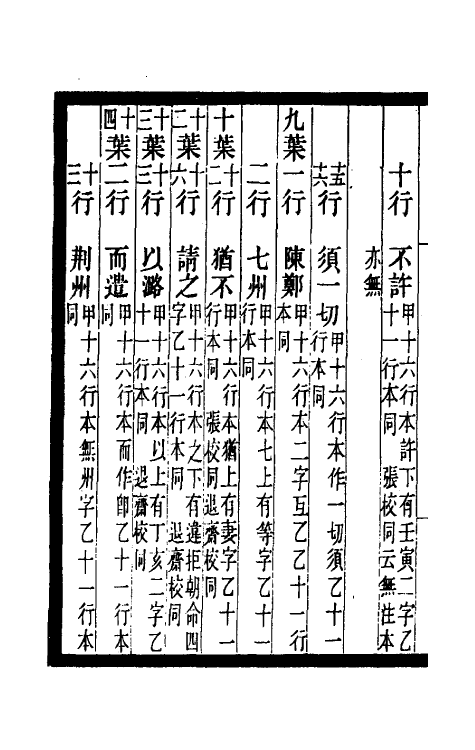 十行　不許甲十六行本許下有壬寅二字乙十一行本同　張校同云無注本
亦無
十五十六行　須一切甲十六行本作一切須乙十一行本同
九葉一行　陳鄭甲十六行本二字互乙乙十一行本同
二行　七州甲十六行本七上有等字乙十一行本同
十葉十二行　猶不甲十六行本猶上有妻字乙十一行本同　張校同退齋校同
十二葉十六行　請之甲十六行本之下有違拒朝命四字乙十一行本同　退齋校同
十三葉十三行　以潞甲十六行本以上有丁亥二字乙十一行本同　退齋校同
十四葉二行　而遣甲十六行本而作卽乙十一行本同
十三行　荆州甲十六行本無州字乙十一行本同